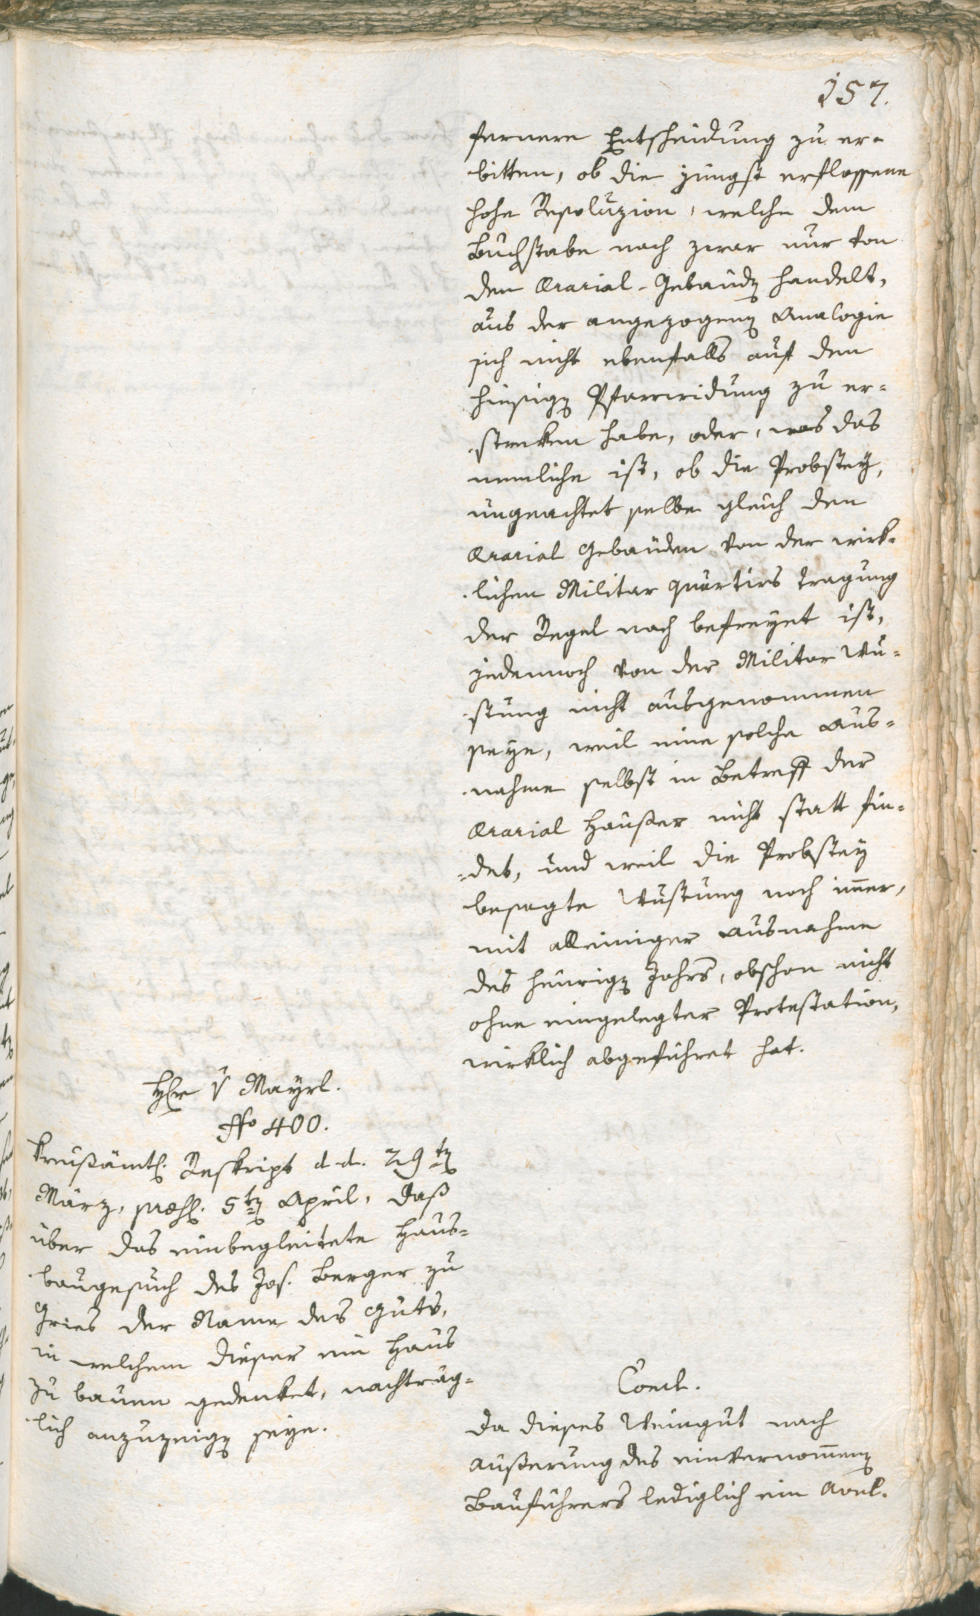 157.
fernere Entscheidung zu er-
bitten, ob die jüngst erflossene
hohe Resoluzion, welche dem
Buchstabe nach zwar nur von
den Ararial-Gebäud handelt,
aus der angezogen Analogie
sich nicht ebenfalls auf den
hiesig Pfarrwidung zu er-
-streken habe, oder, was das
nemliche ist, ob die Probstey,
ungeachtet selbe gleich den
Ararial Gebäuden von der wirk-
-lichen Militar quartirs tragung
der Regel nach befreyet ist,
jedennoch von der Militar Wu-
-stung nicht ausgenommen
seye, weil eine solche Aus-
-nahme selbst in Betreff der
Ararial Häußer nicht statt fin-
-det, und weil die Probstey
besagte Wustung noch imer,
mit alleiniger Ausnahme
des heurig Jahrs, obschon nicht
ohne eingelegter Protestation,
wirklich abgeführet hat.
H v Mayrl.
No 400.
Kreisämtl. Reskript d. d. 29t
März, præs. 5t April, daß
über das einbegleitete Haus-
-baugesuch des Jos. Berger zu
Gries der Name des Guts,
in welchem dieser ein Haus
zu bauen gedenket, nachträg-
-lich anzuzeig seye.
Concl.
Da dieses Weingut nach
Außerung des einvernommen
Bauführers lediglich ein